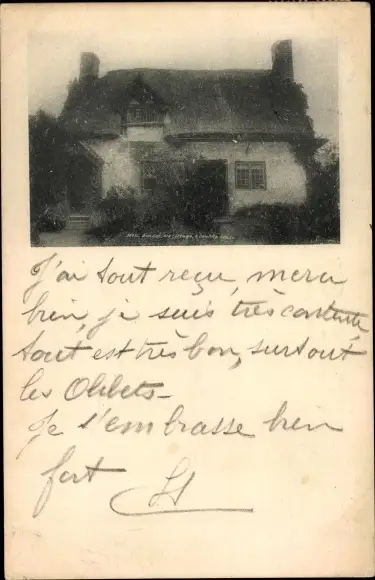 J'ai tout reçu, merci
bien, je suis très contente,
tout est très bon, surtout
les
Je t'embrasse bien
fort